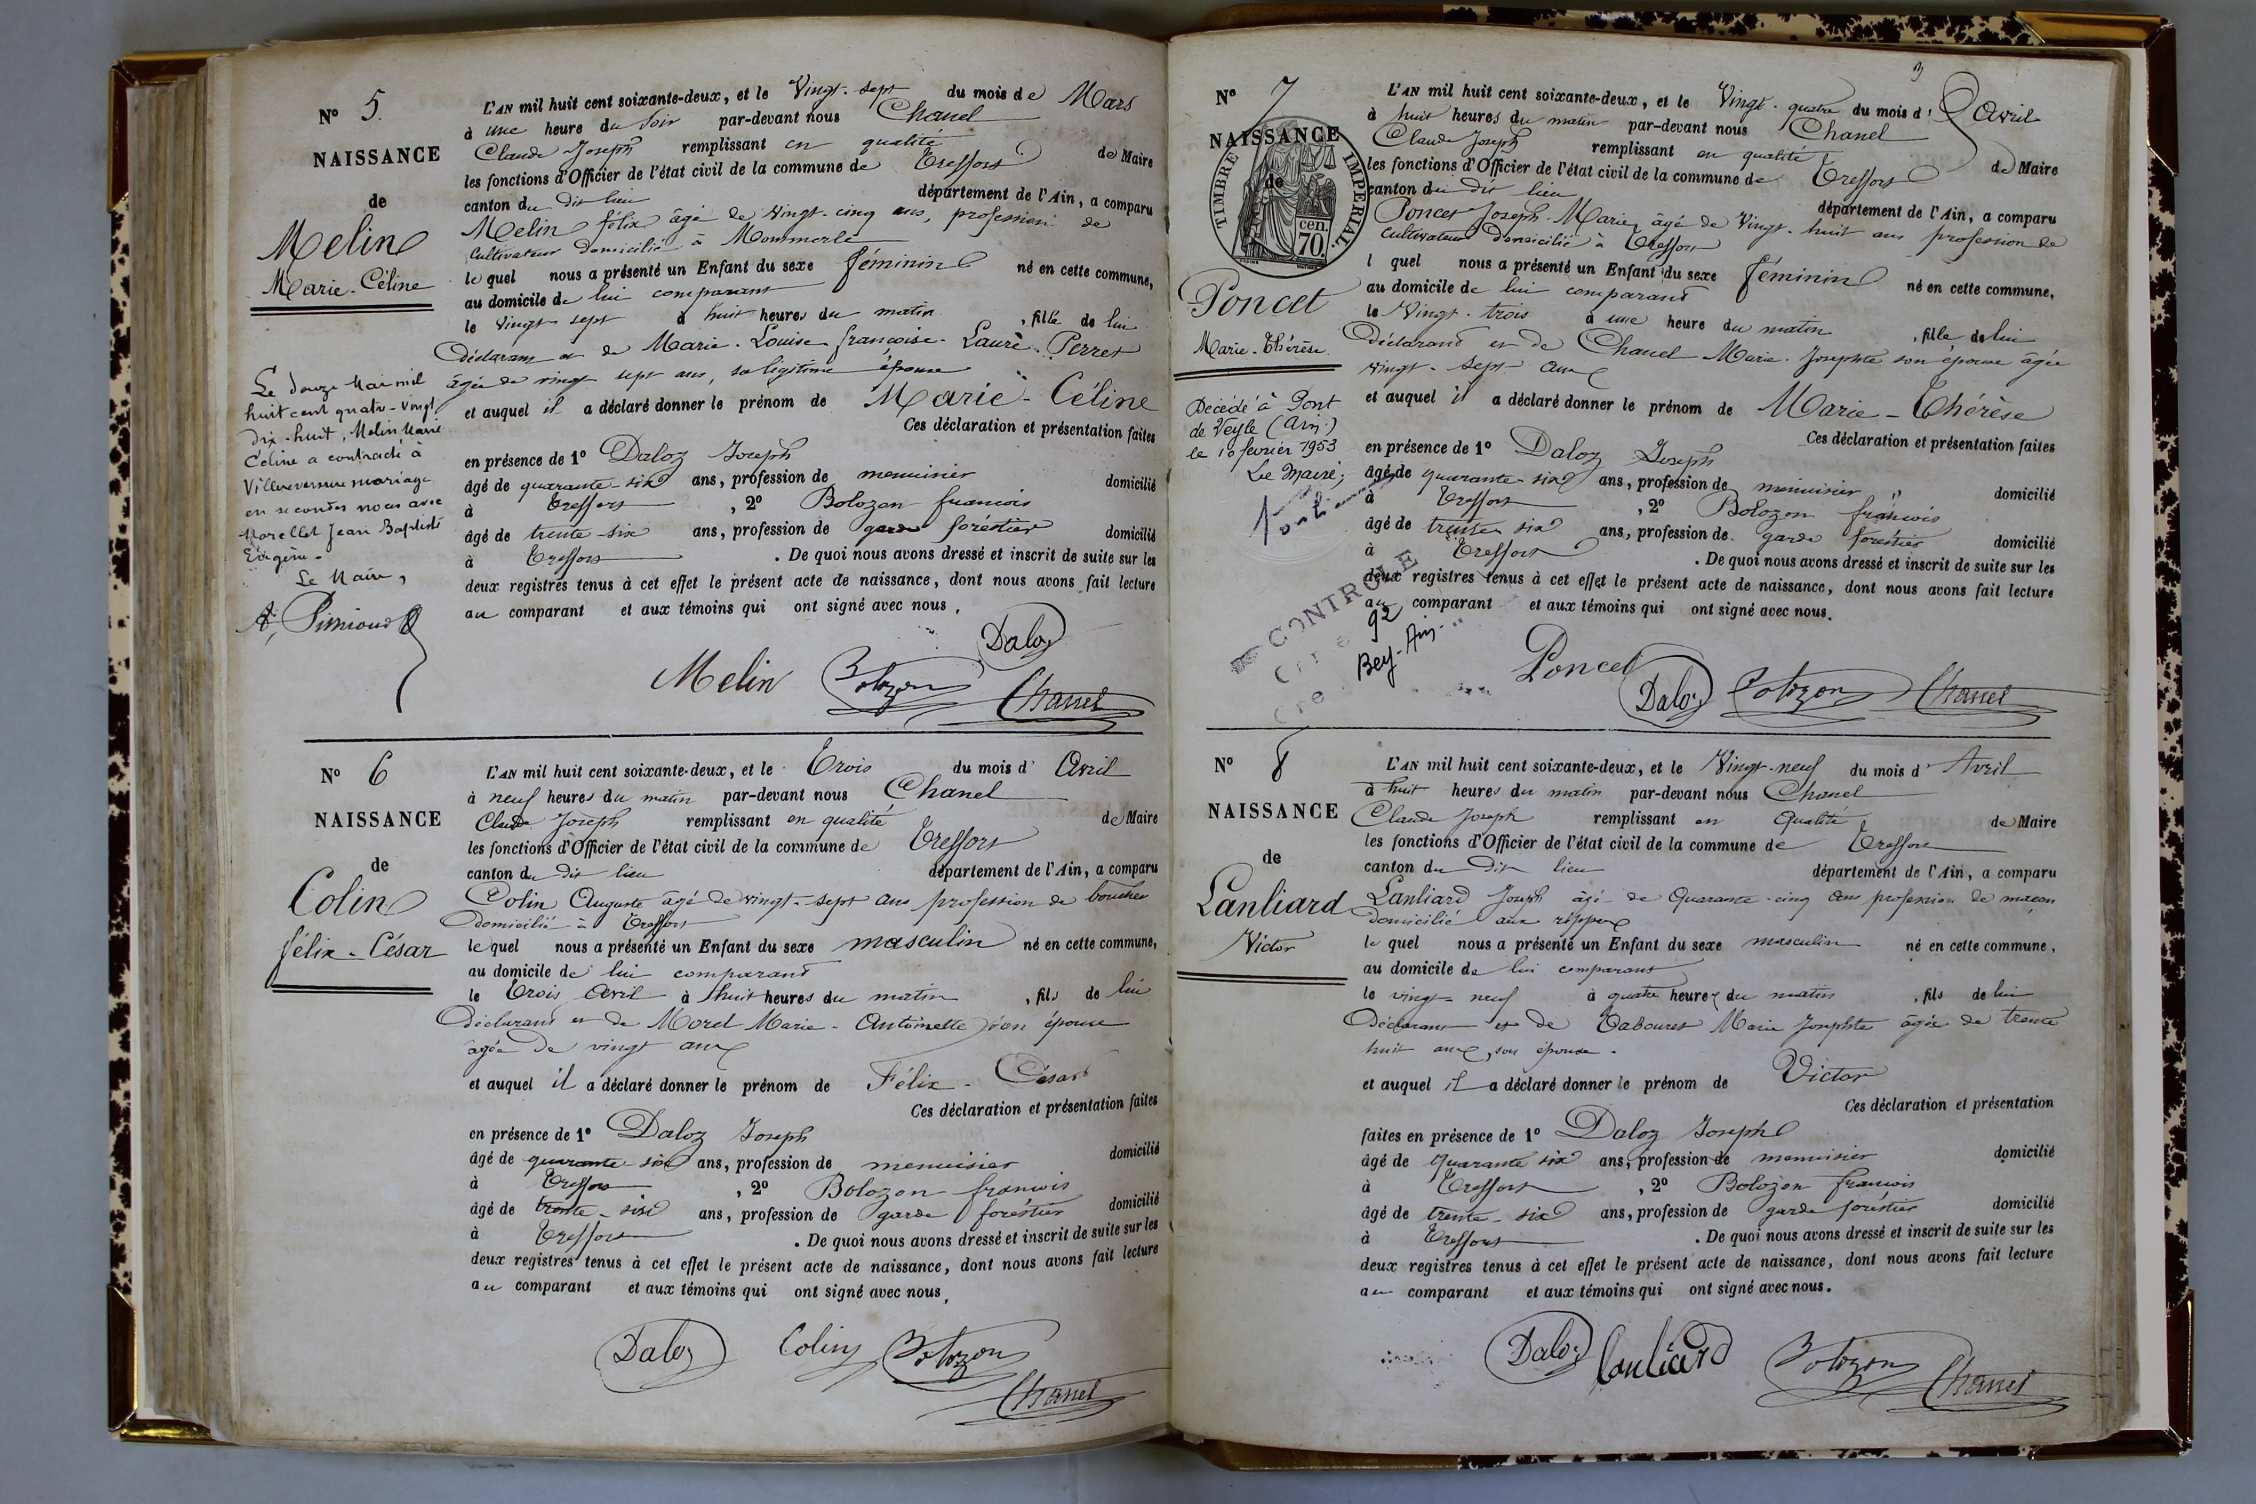 N° 5.
NAISSANCE
de
Melin
Marie-Céline
L'AN mil huit cent soixante-deux, et le Vingt-sept du mois de Mars
à une heure du soir par-devant nous Chanel
Claude Joseph remplissant en qualité de Maire
les fonctions d'Officier de l'état civil de la commune de Treffort
canton du dit lieu département de l'Ain, a comparu
Melin félix âgé de vingt-cinq ans, profession de
cultivateur domicilié à Montmerle
lequel nous a présenté un Enfant du sexe féminin né en cette commune,
au domicile de lui comparant
le vingt sept à huit heures du matin, fille de lui
Déclarant et de Marie-Louise françoise-Laure Perret
âgée de vingt sept ans, sa légitime épouse
et auquel il a déclaré donner le prénom de Marie-Céline
Ces déclaration et présentation faites
en présence de 1° Daloz Joseph
âgé de quarante-six ans, profession de menuisier domicilié
à Treffort, 2° Bolozon francois
âgé de trente-six ans, profession de garde foréstier domicilié
à Treffort. De quoi nous avons dressé et inscrit de suite sur les
deux registres tenus à cet effet le présent acte de naissance, dont nous avons fait lecture
au comparant et aux témoins qui ont signé avec nous.
Daloz
Melin Bolozon Chanel
Le douze Mai mil
huit cent quatre-vingt
dix-huit, Melin Marie
Céline a contracté à
Villereversure mariage
en secondes noces avec
Morellet Jean Baptiste
Eugène.
Le Maire,
N° 6
NAISSANCE
de
Colin
félix-César
L'AN mil huit cent soixante-deux, et le Trois du mois d'Avril
à neuf heures du matin par-devant nous Chanel
Claude Joseph remplissant en qualité de Maire
les fonctions d'Officier de l'état civil de la commune de Treffort
canton du dit lieu département de l'Ain, a comparu
Colin Auguste âgé de vingt-sept ans profession de boucher
domicilié à Treffort
lequel nous a présenté un Enfant du sexe masculin né en cette commune,
au domicile de lui comparant
le Trois Avril à huit heures du matin, fils de lui
Déclarant et de Morel Marie-Antoinette son épouse
âgée de vingt ans
et auquel il a déclaré donner le prénom de Félix-César
Ces déclaration et présentation faites
en présence de 1° Daloz Joseph
âgé de quarante-six ans, profession de menuisier domicilié
à Treffort, 2° Bolozon francois
âgé de trente-six ans, profession de garde foréstier domicilié
à Treffort. De quoi nous avons dressé et inscrit de suite sur les
deux registres tenus à cet effet le présent acte de naissance, dont nous avons fait lecture
au comparant et aux témoins qui ont signé avec nous,
Daloz Colin Bolozon
Chanel
3
N° 7
NAISSANCE
de
TIMBRE IMPÉRIAL.
70 cen.
Poncet
Marie-Thérèse
L'AN mil huit cent soixante-deux, et le Vingt-quatre du mois d'Avril
à huit heures du matin par-devant nous Chanel
Claude Joseph remplissant en qualité de Maire
les fonctions d'Officier de l'état civil de la commune de Treffort
canton du dit lieu département de l'Ain, a comparu
Poncet Joseph-Marie, âgé de Vingt-huit ans profession de
cultivateur domicilié à Treffort
l quel nous a présenté un Enfant du sexe féminin né en cette commune,
au domicile de lui comparant
le Vingt-trois à une heure du matin, fille de lui
Déclarant et de Chanel Marie-Josephte son épouse âgée
vingt-sept ans
et auquel il a déclaré donner le prénom de Marie-Thérèse
Ces déclaration et présentation faites
en présence de 1° Daloz Joseph
âgé de quarante-six ans, profession de menuisier domicilié
à Treffort, 2° Bolozon francois
âgé de trente six ans, profession de garde foréstier domicilié
à Treffort. De quoi nous avons dressé et inscrit de suite sur les
deux registres tenus à cet effet le présent acte de naissance, dont nous avons fait lecture
au comparant et aux témoins qui ont signé avec nous.
Poncet Daloz Bolozon Chanel
Décédé à Pont
de Veyle (Ain)
le 10 février 1953
Le Maire;
CONTROLE
92
Bey-Ain
N° 8
NAISSANCE
de
Lanliard
Victor
L'AN mil huit cent soixante-deux, et le Vingt-neuf du mois d'Avril
à huit heures du matin par-devant nous Chanel
Claude Joseph remplissant en Qualité de Maire
les fonctions d'Officier de l'état civil de la commune de Treffort
canton du Dit lieu département de l'Ain, a comparu
Lanliard Joseph âgé de Quarante-cinq ans profession de maçon
domicilié aux rippes
le quel nous a présenté un Enfant du sexe masculin né en cette commune,
au domicile de lui comparant
le vingt-neuf à quatre heures du matin, fils de lui
Déclarant et de Tabouret Marie Josephte âgée de trente
huit ans, son épouse.
et auquel il a déclaré donner le prénom de Victor
Ces déclaration et présentation
faites en présence de 1° Daloz Joseph
âgé de quarante six ans, profession de menuisier domicilié
à Treffort, 2° Bolozon francois
âgé de trente-six ans, profession de garde foréstier domicilié
à Treffort. De quoi nous avons dressé et inscrit de suite sur les
deux registres tenus à cet effet le présent acte de naissance, dont nous avons fait lecture
au comparant et aux témoins qui ont signé avec nous.
Daloz Lanliard Bolozon Chanel